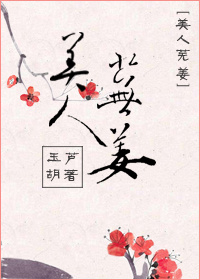 [美人芜姜]
美人
蕪姜
玉胡
芦著